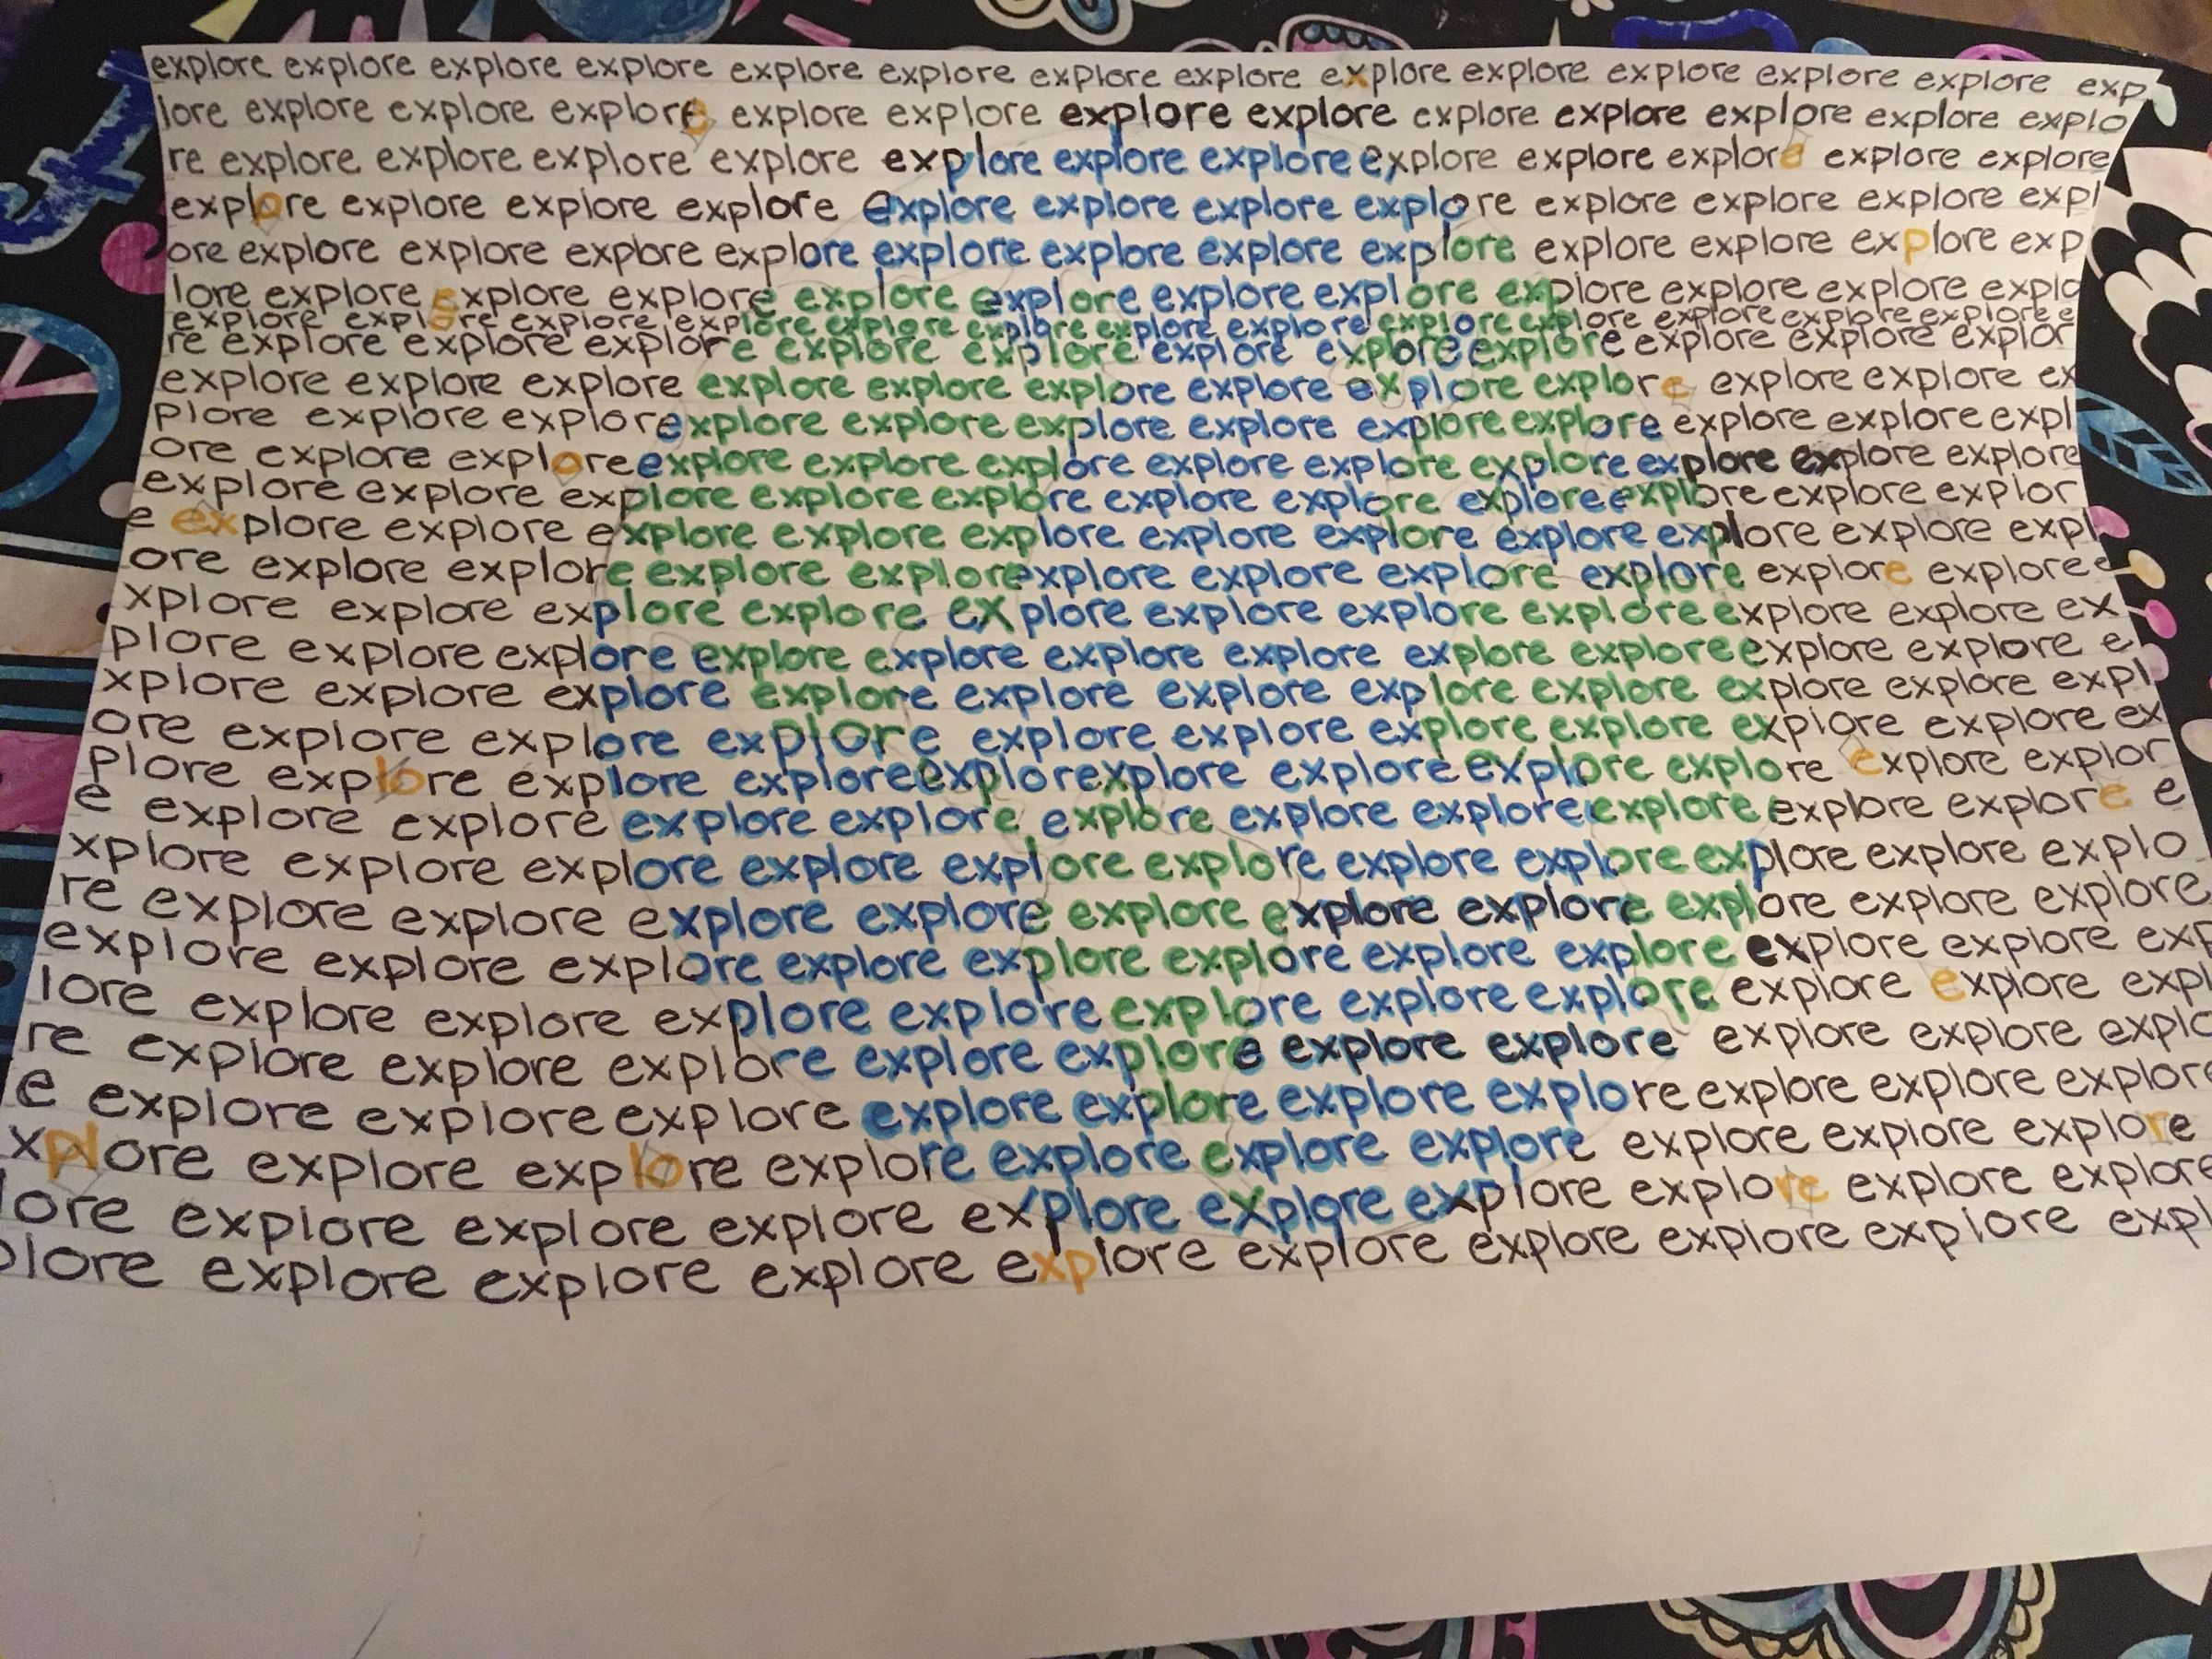 explore explore explore explore explore explore explore explore explore explore explore explore explore exp
lore explore explore explore explore explore explore explore explore explore explore explore explo
re explore explore explore explore explore explore explore explore explore explore explore explore
explore explore explore explore explore explore explore explore explore explore explore expl
ore explore explore explore explore explore explore explore explore explore explore explore exp
lore explore explore explore explore explore explore explore explore explore explore explo
explore explore explore explore explore explore explore explore explore explore explore explore explore e
re explore explore explore explore explore explore explore explore explore explore explor
explore explore explore explore explore explore explore explore explore explore explore ex
plore explore explore explore explore explore explore explore explore explore explore expl
ore explore explore explore explore explore explore explore explore explore explore explore
explore explore explore explore explore explore explore explore explore explore explor
e explore explore explore explore explore explore explore explore explore explore expl
ore explore explore explore explore explore explore explore explore explore explore e
xplore explore explore explore explore explore explore explore explore explore ex
plore explore explore explore explore explore explore explore explore explore explore e
xplore explore explore explore explore explore explore explore explore explore expl
ore explore explore explore explore explore explore explore explore explore ex
plore explore explore explore explorexplore explore explore explore explore explor
e explore explore explore explore explore explore explore explore explore explore e
xplore explore explore explore explore explore explore explore explore explore explo
re explore explore explore explore explore explore explore explore explore explore
explore explore explore explore explore explore explore explore explore explore exp
lore explore explore explore explore explore explore explore explore explore expl
re explore explore explore explore explore explore explore explore explore explo
e explore explore explore explore explore explore explore explore explore explore
xplore explore explore explore explore explore explore explore explore explore
lore explore explore explore explore explore explore explore explore explore
plore explore explore explore explore explore explore explore explore expl